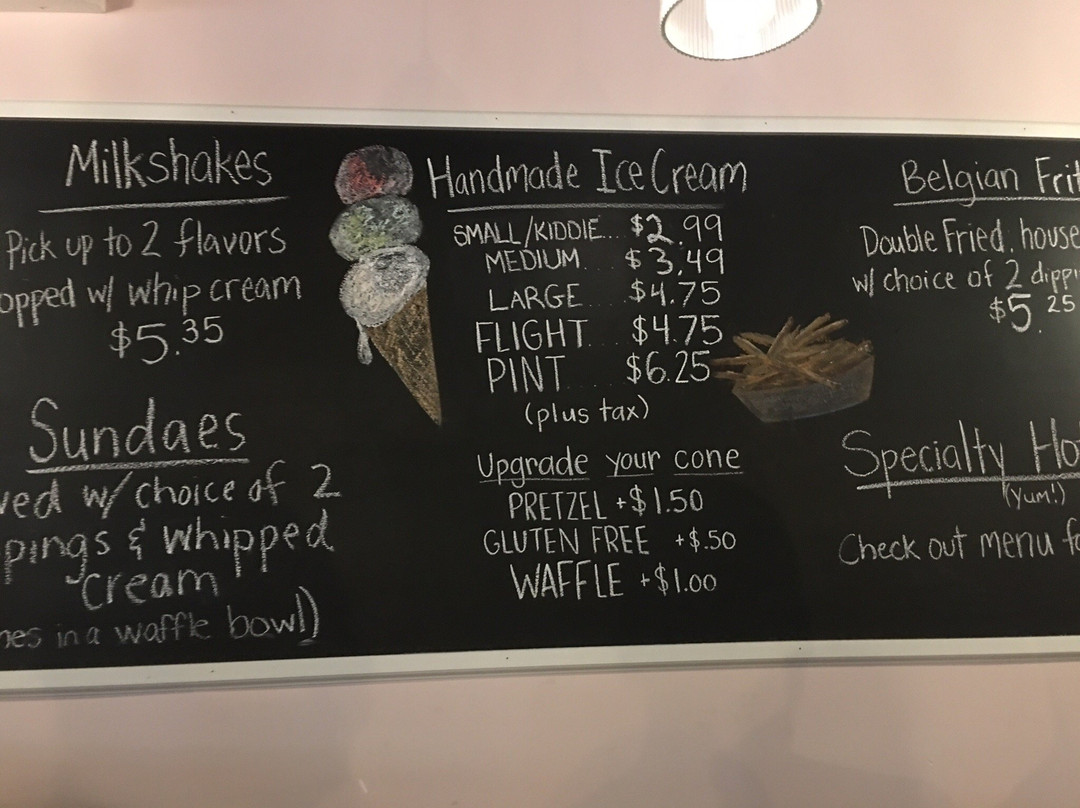 Milkshakes
Pick up to 2 flavors
opped w/ whip cream
$5.35
Sundaes
ved w/ choice of 2
pings & whipped
cream
nes in a waffle bowl)
Handmade Ice Cream
SMALL/KIDDIE... $2.99
MEDIUM.... $3.49
LARGE.... $4.75
FLIGHT.... $4.75
PINT..... $6.25
(plus tax)
Upgrade your cone
PRETZEL +$1.50
GLUTEN FREE +$.50
WAFFLE +$1.00
Belgian Frit
Double Fried, house
w/ choice of 2 dippi
$5.25
Specialty Ho
(yum!)
Check out menu fo